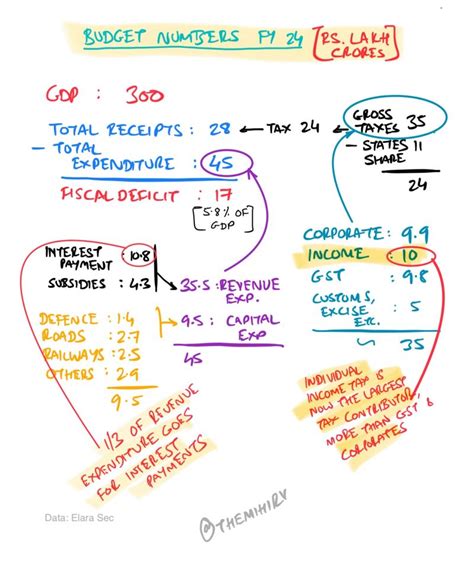 BUDGET NUMBERS FY 24 [RS. LAKH CRORES]
GDP : 300
TOTAL RECEIPTS : 28 ← TAX 24
- TOTAL EXPENDITURE : 45
FISCAL DEFICIT : 17
[5.8% OF GDP]
GROSS TAXES 35
- STATES 11
SHARE
24
CORPORATE : 9.9
INCOME : 10
GST : 9.8
CUSTOMS, EXCISE ETC. : 5
35
INTEREST PAYMENT : 10.8
SUBSIDIES : 4.3
35.5 : REVENUE EXP.
9.5 : CAPITAL EXP
45
DEFENCE : 1.4
ROADS : 2.7
RAILWAYS : 2.5
OTHERS : 2.9
9.5
1/3 OF REVENUE
EXPENDITURE GOES
FOR INTEREST
PAYMENTS
INDIVIDUAL
INCOME TAX IS
NOW THE LARGEST
TAX CONTRIBUTOR,
MORE THAN GST &
CORPORATES
Data: Elara Sec
@THEMIHIRV